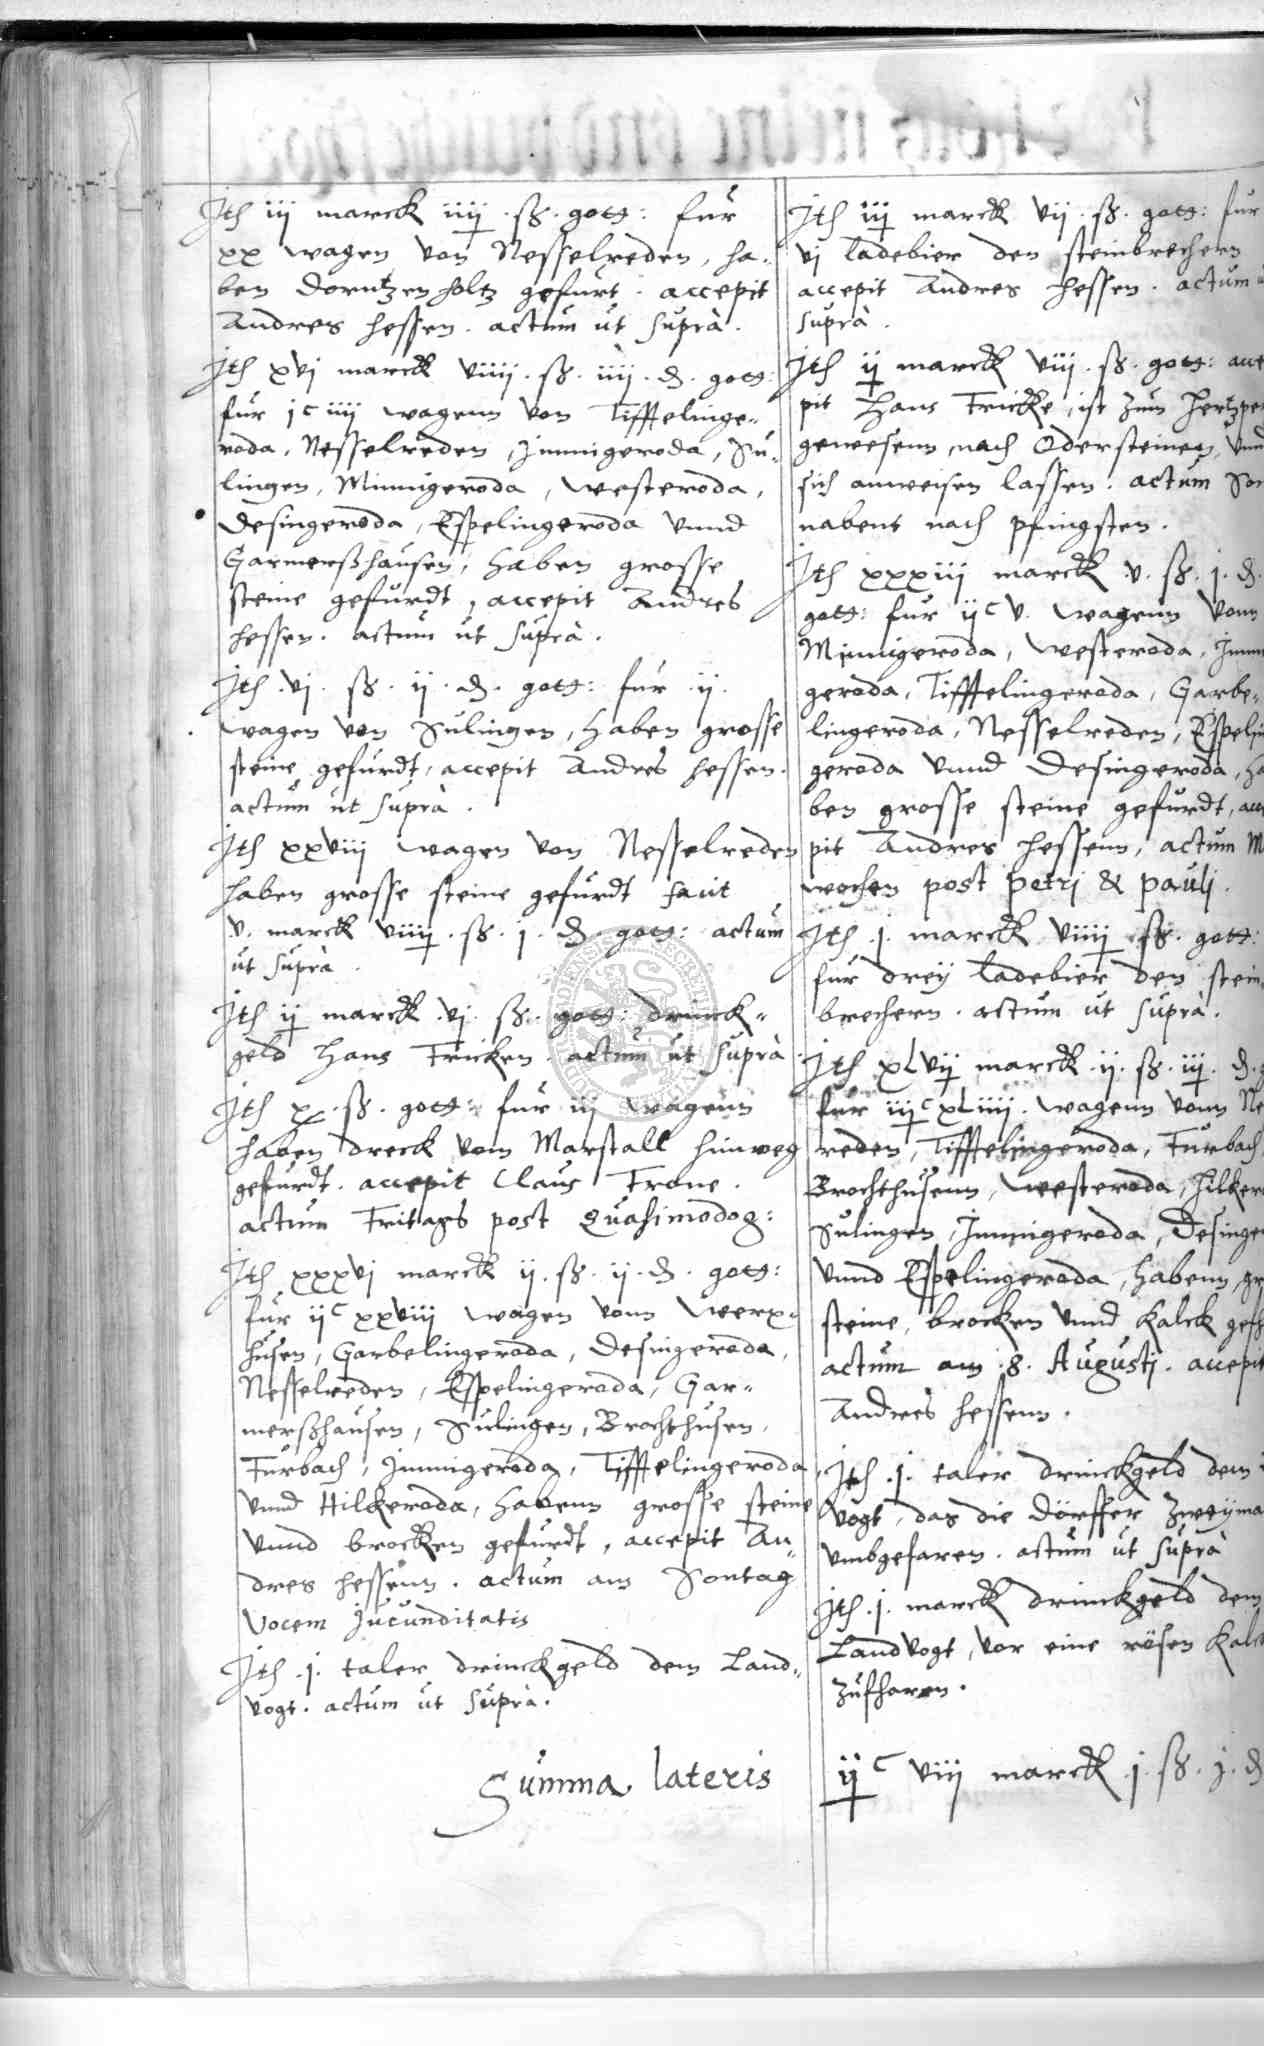 Ith iij marck iiij . ß . gott: fur
xx wagen von Nesselreden, ha-
ben Dorntzenholtz gefurt . accepit
Andres Hessen . actum ut supra .
Ith xvj marck viiij . ß . iiij . ₰ . gott:
fur jc iiij wagenn von Tifftelinge-
roda, Nesselreden, Jmmigeroda, Su-
lingen, Minnigeroda, Westeroda,
Desingeroda, Espelingeroda vnnd
Garmerßhausen, haben grosse
steine gefurdt, accepit Andres
Hessen . actum ut supra .
Ith . vj . ß . ij . ₰ . gott: fur . ij .
wagen von Sulingen, haben grosse
steine gefurdt, accepit Andres Hessen .
actum ut supra .
Ith xxviij wagen von Nesselreden
haben grosse steine gefurdt facit
v . marck viiij . ß . j . ₰ . gott: actum
ut supra .
Ith ij marck . vj . ß . gott: drinck-
geld Hans Fricken . actum ut supra
Ith x . ß . gott: fur iij wagenn
haben dreck vom Marstall hinweg
gefurdt . accepit Claus Trone .
actum Fritags post Quasimodog:
Ith xxxvj marck ij . ß . ij . ₰ . gott:
fur ijc xxviij wagen vonn Werx-
husen, Garbelingeroda, Desingeroda,
Nesselreden, Espelingeroda, Gar-
merßhausen, Sulingen, Brochthusen,
Furbach, Jmmigeroda, Tifftelingeroda,
vnnd Hilkeroda, habenn grosse steine
vnnd brocken gefurdt, accepit An-
dres Hessenn . actum am Sontag
Vocem Jucunditatis
Ith . j . taler drinckgeld dem Land-
vogt . actum ut supra .
Summa lateris
Ith iij marck vij . ß . gott: fur
vj ladebier den steinbrechern
accepit Andres Hessen . actum
supra .
Ith ij marck viij . ß . gott: acce
pit Hans Fricke, ist zum Hertzper
gewesenn, nach Odersteinen, vnn
sich anweisen lassen . actum Son
nabent nach pfingsten .
Ith xxxiij marck v . ß . j . ₰ .
gott: fur ijc v . wagenn vonn
Minnigeroda, Westeroda, Jmm
geroda, Tifftelingeroda, Garbe-
lingeroda, Nesselreden, Espelin
geroda vnnd Desingeroda, ha
ben grosse steine gefurdt, acce
pit Andres Hessenn, actum M
wochen post petri & pauli .
Ith . j . marck viiij ß . gott:
fur dreij ladebier den stein-
brechern . actum ut supra .
Ith xLvij marck . ij . ß . iij . ₰ .
fur iijc xLiiij . wagenn vonn Ne
reden, Tifftelingeroda, Furbach,
Brochthusenn, Westeroda, Hilker
Sulingen, Jmmigeroda, Desinge
vnnd Espelingeroda, habenn gr
steine, brocken vnnd kalck gef
actum am . 8 . Augustj . accepit
Andres Hessenn .
Ith . j . taler drinckgeld dem
vogt, das die Dörffer zweyma
vmbgefaren . actum ut supra
Ith . j . marck drinckgeld dem
Landvogt, vor eine rösen kalc
zufharen .
ijc viij marck . j . ß . j . ₰